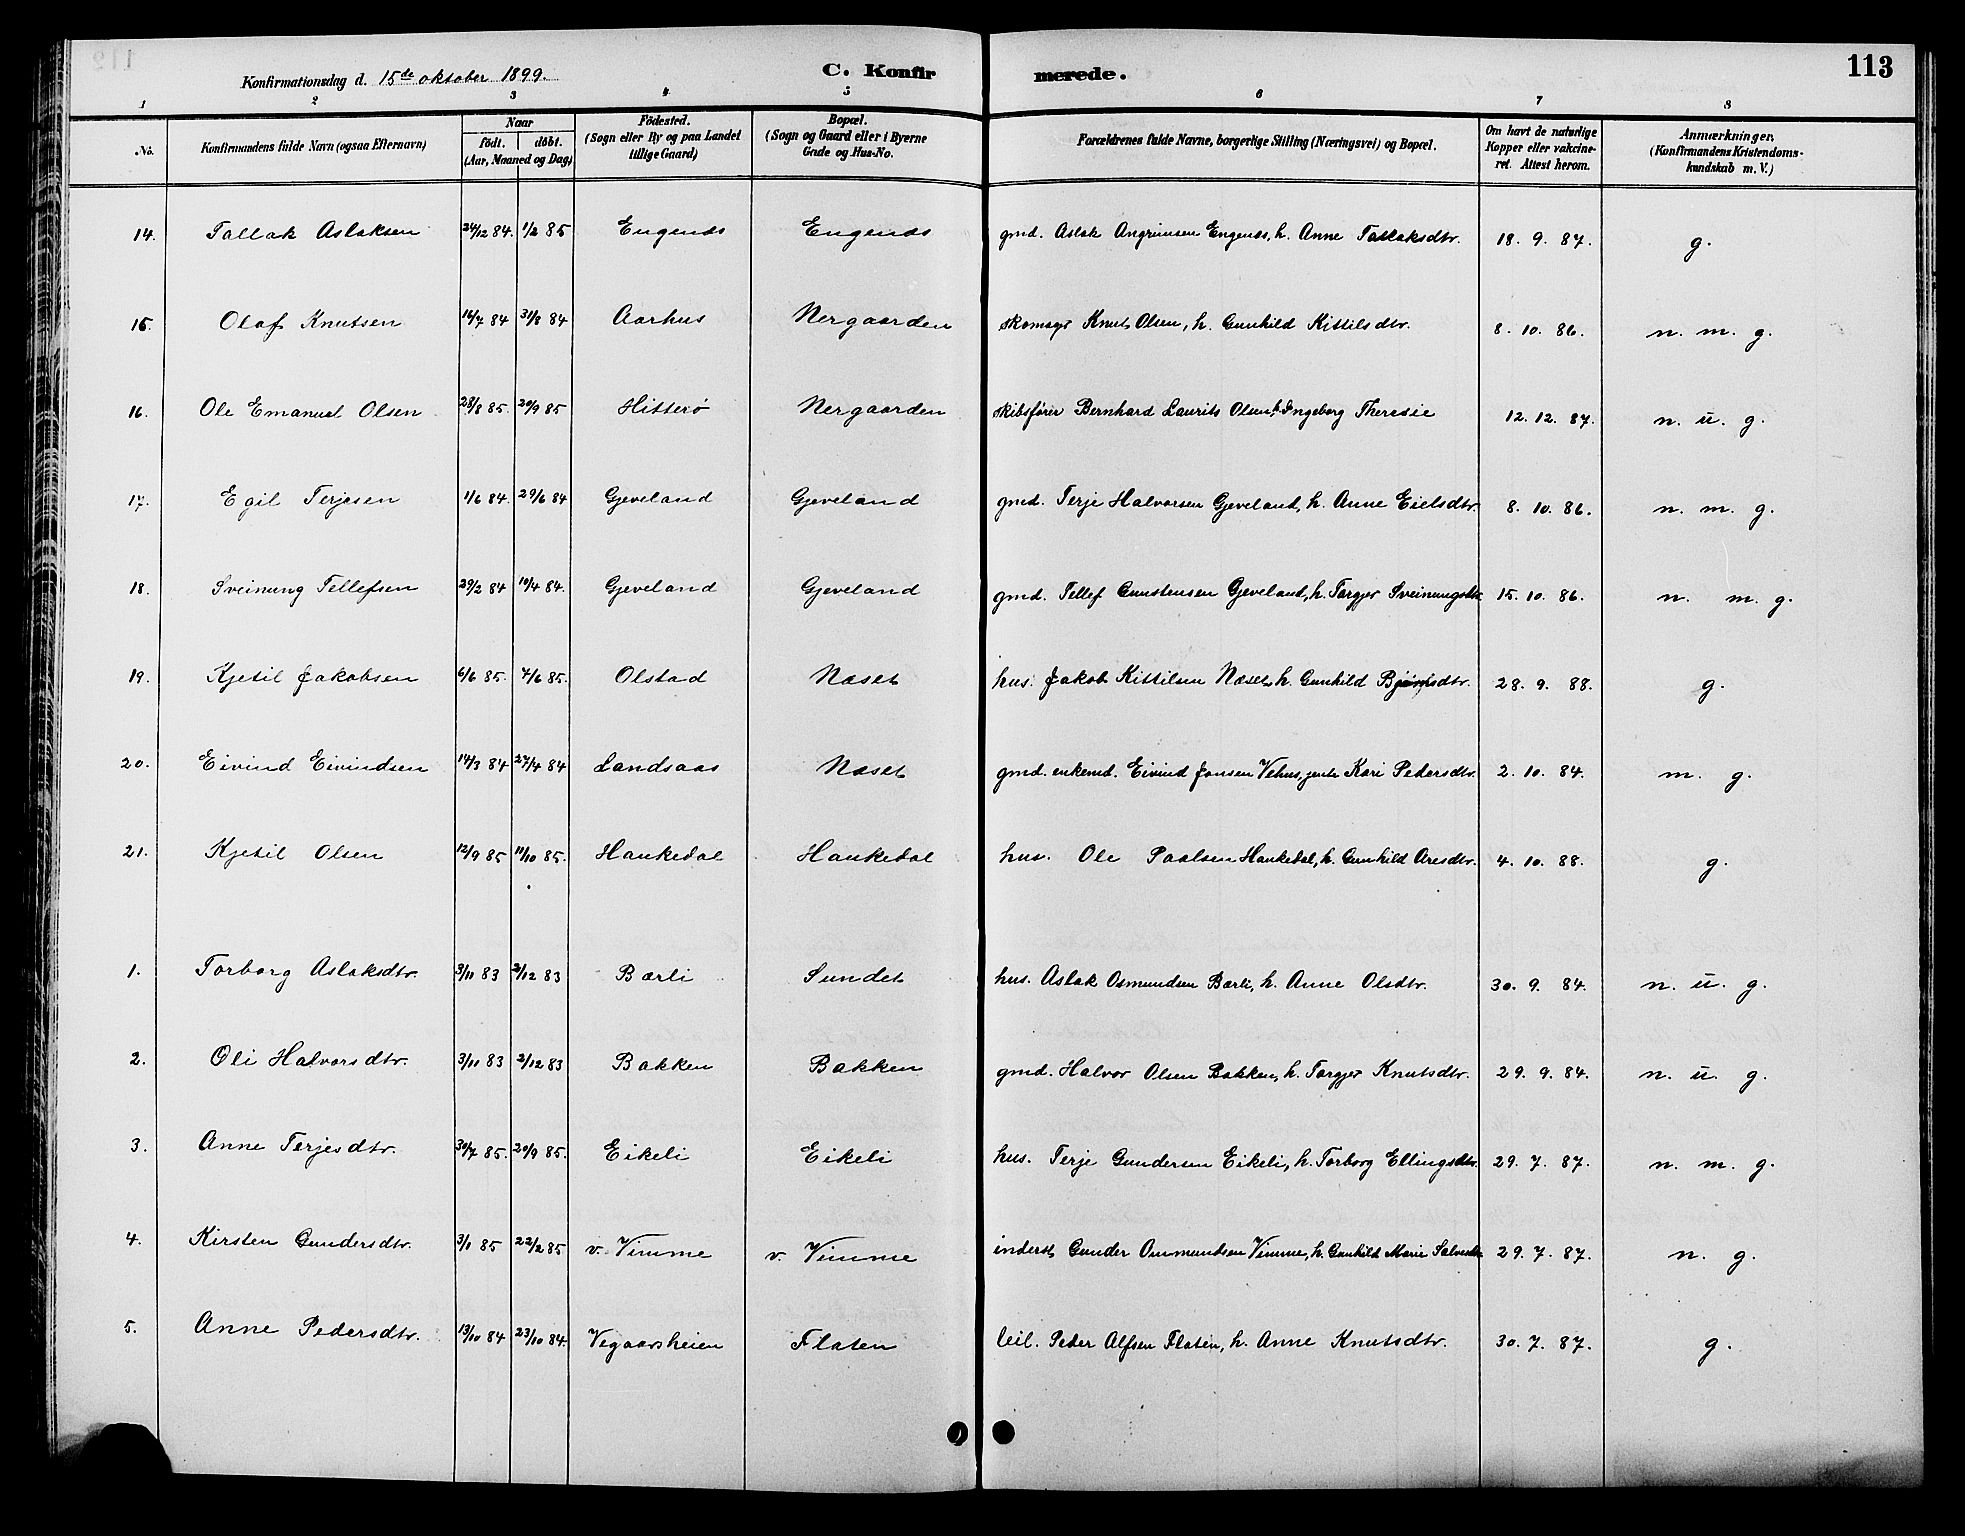 Konfirmationsdag d. 15de oktober 1899. C. Konfirmerede. 113
1 2 3 4 5 6 7 8
No. Konfirmandens fulde Navn (ogsaa Efternavn) Naar födt. döbt. (Aar, Maaned og Dag) Födested. (Sogn eller By og paa Landet tillige Gaard) Bopæl. (Sogn og Gaard eller i Byerne Gade og Hus-No. Forældrenes fulde Navne, borgerlige Stilling (Næringsvei) og Bopæl. Om havt de naturlige Kopper eller vakcineret. Attest herom. Anmærkninger. (Konfirmandens Kristendomskundskab m. V.)
14. Tallak Aslaksen 24/12 84. 1/2 85 Engenes Engenes gmd. Aslak Angrimsen Engenes, h. Anne Tallaksdtr. 18. 9. 87. g.
15. Olaf Knutsen 16/7 84 31/8 84 Aarhus Nergaarden skomagr Knut Olsen, h. Gunhild Kittilsdtr. 8. 10. 86. n. m. g.
16. Ole Emanuel Olsen 28/8 85. 20/9 85 Hitterö Nergaarden skibsfører Bernhard Laurits Olsen h. Ingeborg Theresie 12. 12. 87. n. u. g.
17. Egil Terjesen 1/6 84. 29/6 84 Gjeveland Gjeveland gmd. Terje Halvorsen Gjeveland, h. Anne Eielsdtr. 8. 10. 86. n. m. g.
18. Sveinung Tellefsen 29/2 84 10/4 84. Gjeveland Gjeveland gmd. Tellef Gunstensen Gjeveland, h. Torgjer Sveinungsdtr. 15. 10. 86. n. m. g.
19. Kjetil Jakobsen 6/6 85. 7/6 85. Olstad Næset hus. Jakob Kittilsen Næset, h. Gunhild 28. 9. 88. g.
20. Eivind Eivindsen 14/3 84 27/4 84 Landsaas Næset gmd. enkemd. Eivind Jonsen Vehus, jente Kari Pedersdtr. 2. 10. 84. m. g.
21. Kjetil Olsen 12/9 85 11/10 85. Haukedal Haukedal hus. Ole Paalsen Haukedal, h. Gunhild Aresdtr. 4. 10. 88. g.
1. Torborg Aslaksdtr. 3/11 83 2/12 83 Bærli Sundet hus. Aslak Osmundsen Bærli, h. Anne Olsdtr. 30. 9. 84. n. u. g.
2. Oli Halvorsdtr. 3/11 83 2/12 83 Bakken Bakken gmd. Halvor Olsen Bakken, h. Torgjer Knutsdtr. 29. 9. 84. n. u. g.
3. Anne Terjesdtr. 30/7 85. 20/9 85. Eikeli Eikeli hus. Terje Gundersen Eikeli, h. Torborg Ellingsdtr. 29. 7. 87. n. m. g.
4. Kirsten Gundersdtr. 3/1 85 22/2 85 v. Vimme v. Vimme inderst Gunder Ommundsen Vimme, h. Gunhild Marie Salvesdtr. 29. 7. 87. n. g.
5. Anne Pedersdtr. 13/10 84 23/10 84. Vegaarsheien Flaten leil. Peder Alfsen Flaten, h. Anne Knutsdtr. 30. 7. 87. g.